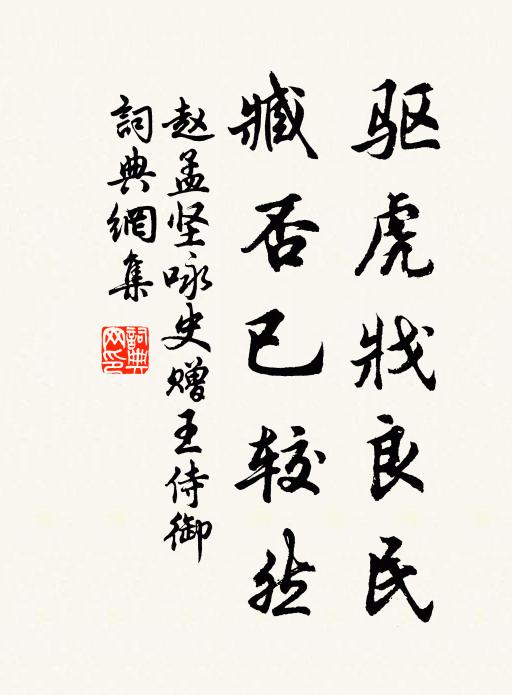 驱虎戕良民
臧否已较然
赵孟坚咏史赠王侍御
詞典網集
詞典网印